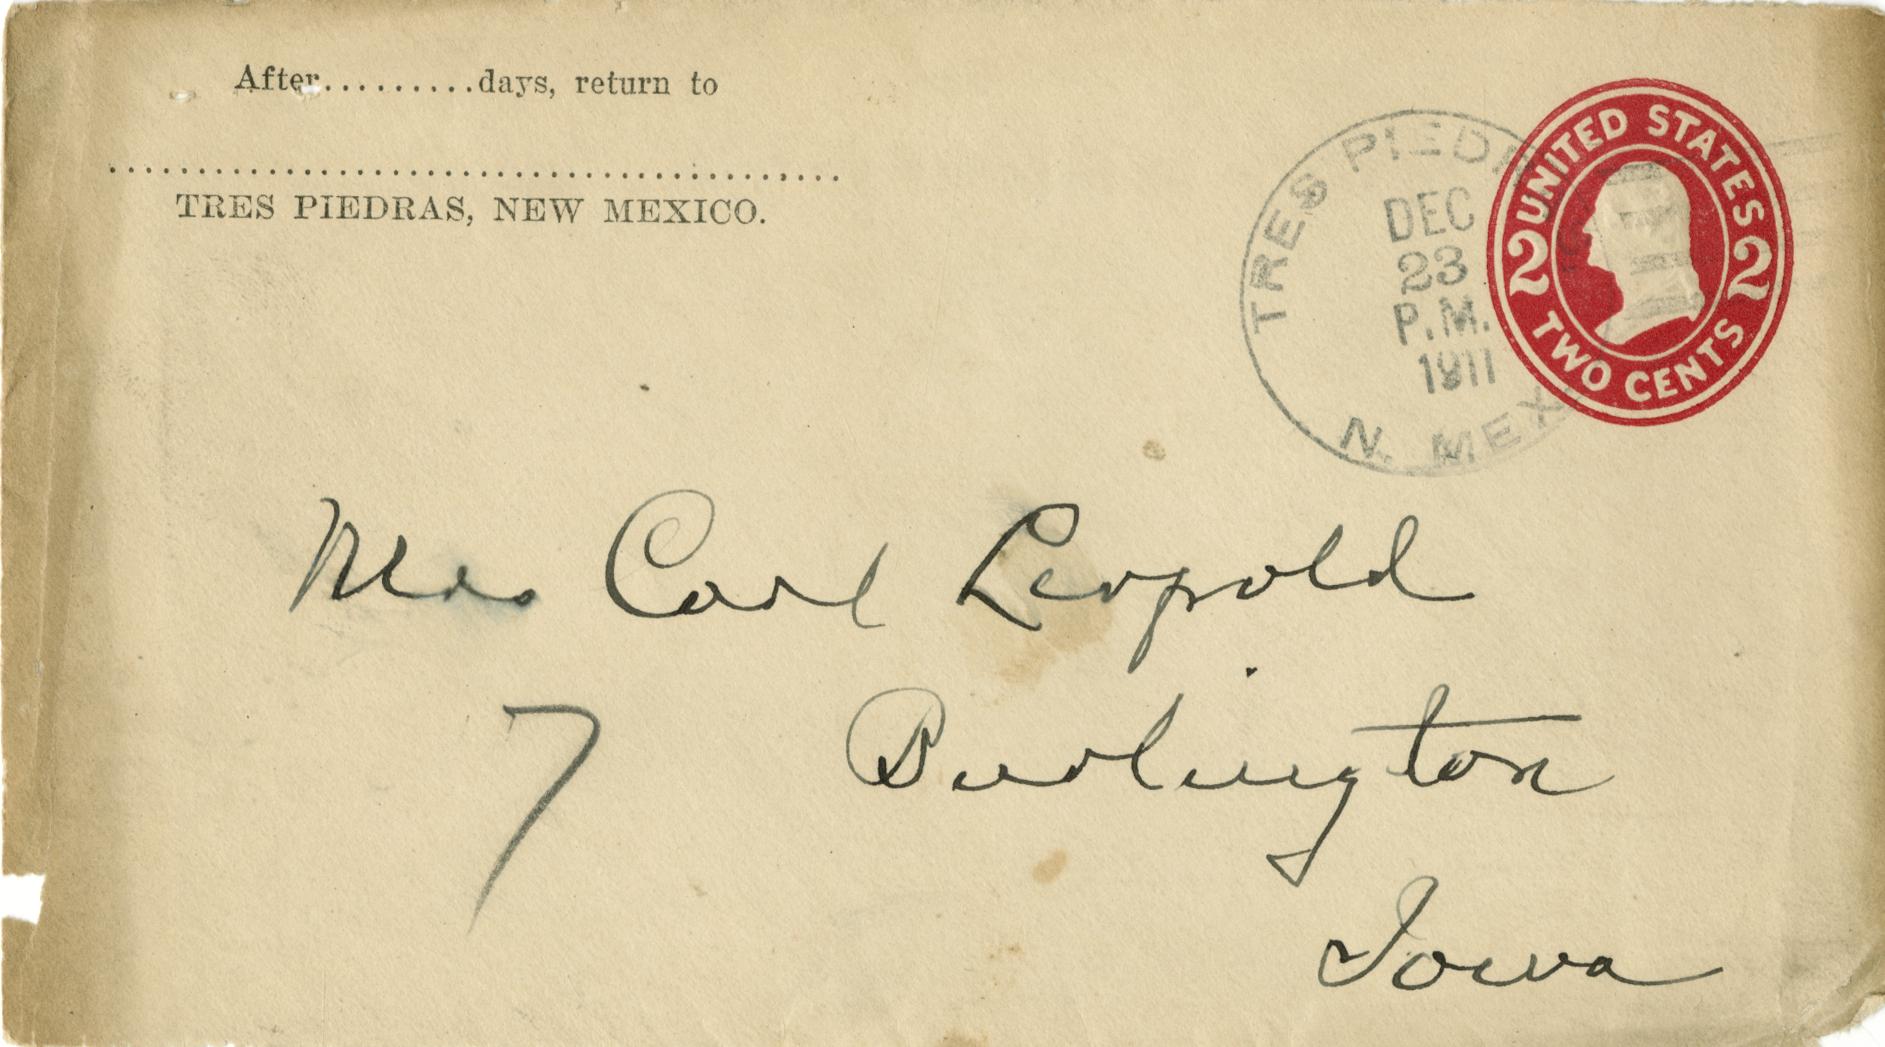 After.........days, return to
TRES PIEDRAS, NEW MEXICO.
TRES PIEDRAS
DEC
23
P.M.
1911
N. MEX.
UNITED STATES
2 2
TWO CENTS
Mrs Carl Leopold
7 Burlington
Iowa